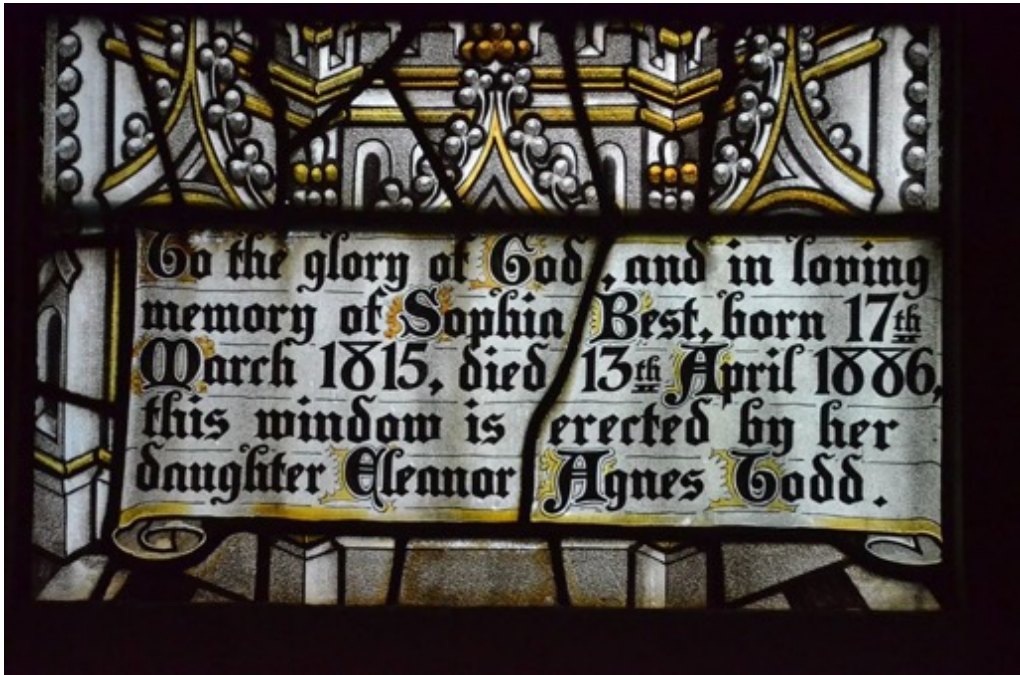 To the glory of God, and in loving
memory of Sophia Best, born 17th
March 1815, died 13th April 1886,
this window is erected by her
daughter Eleanor Agnes Todd.